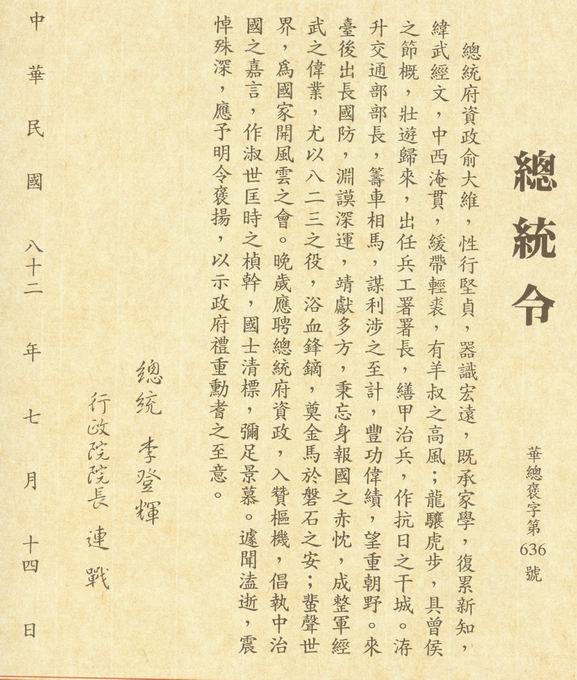 總統令
華總褒字第636號
總統府資政俞大維，性行堅貞，器識宏遠，既承家學，復累新知，
緯武經文，中西淹貫，緩帶輕裘，有羊叔之高風；龍驤虎步，具曾侯
之節概，壯遊歸來，出任兵工署署長，繕甲治兵，作抗日之干城。洊
升交通部部長，籌車相馬，謀利涉之至計，豐功偉績，望重朝野。來
臺後出長國防，淵謨深運，靖獻多方，秉忘身報國之赤忱，成整軍經
武之偉業，尤以八二三之役，浴血鋒鏑，奠金馬於磐石之安；蜚聲世
界，爲國家開風雲之會。晚歲應聘總統府資政，入贊樞機，倡執中治
國之嘉言，作淑世匡時之楨幹，國士清標，彌足景慕。遽聞溘逝，震
悼殊深，應予明令褒揚，以示政府禮重勳耆之至意。
總統 李登輝
行政院院長 連戰
中華民國八十二年七月十四日